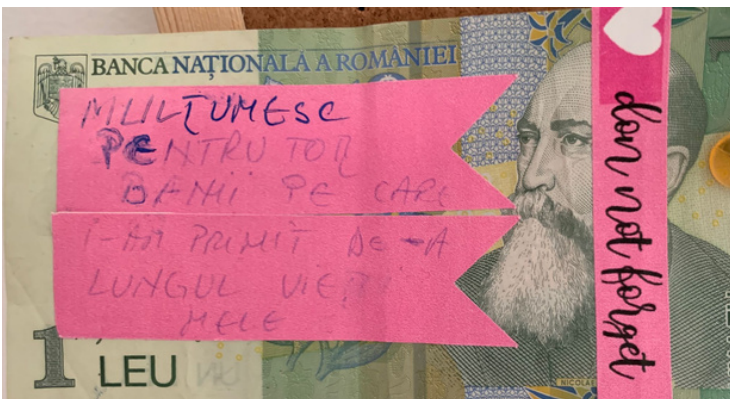 BANCA NAȚIONALĂ A ROMÂNIEI
MULȚUMESC
PENTRU TOȚI
BANII PE CARE
I-AM PRIMIT DE-A
LUNGUL VIEȚII
MELE
1
LEU
NICOLAE
don not forget